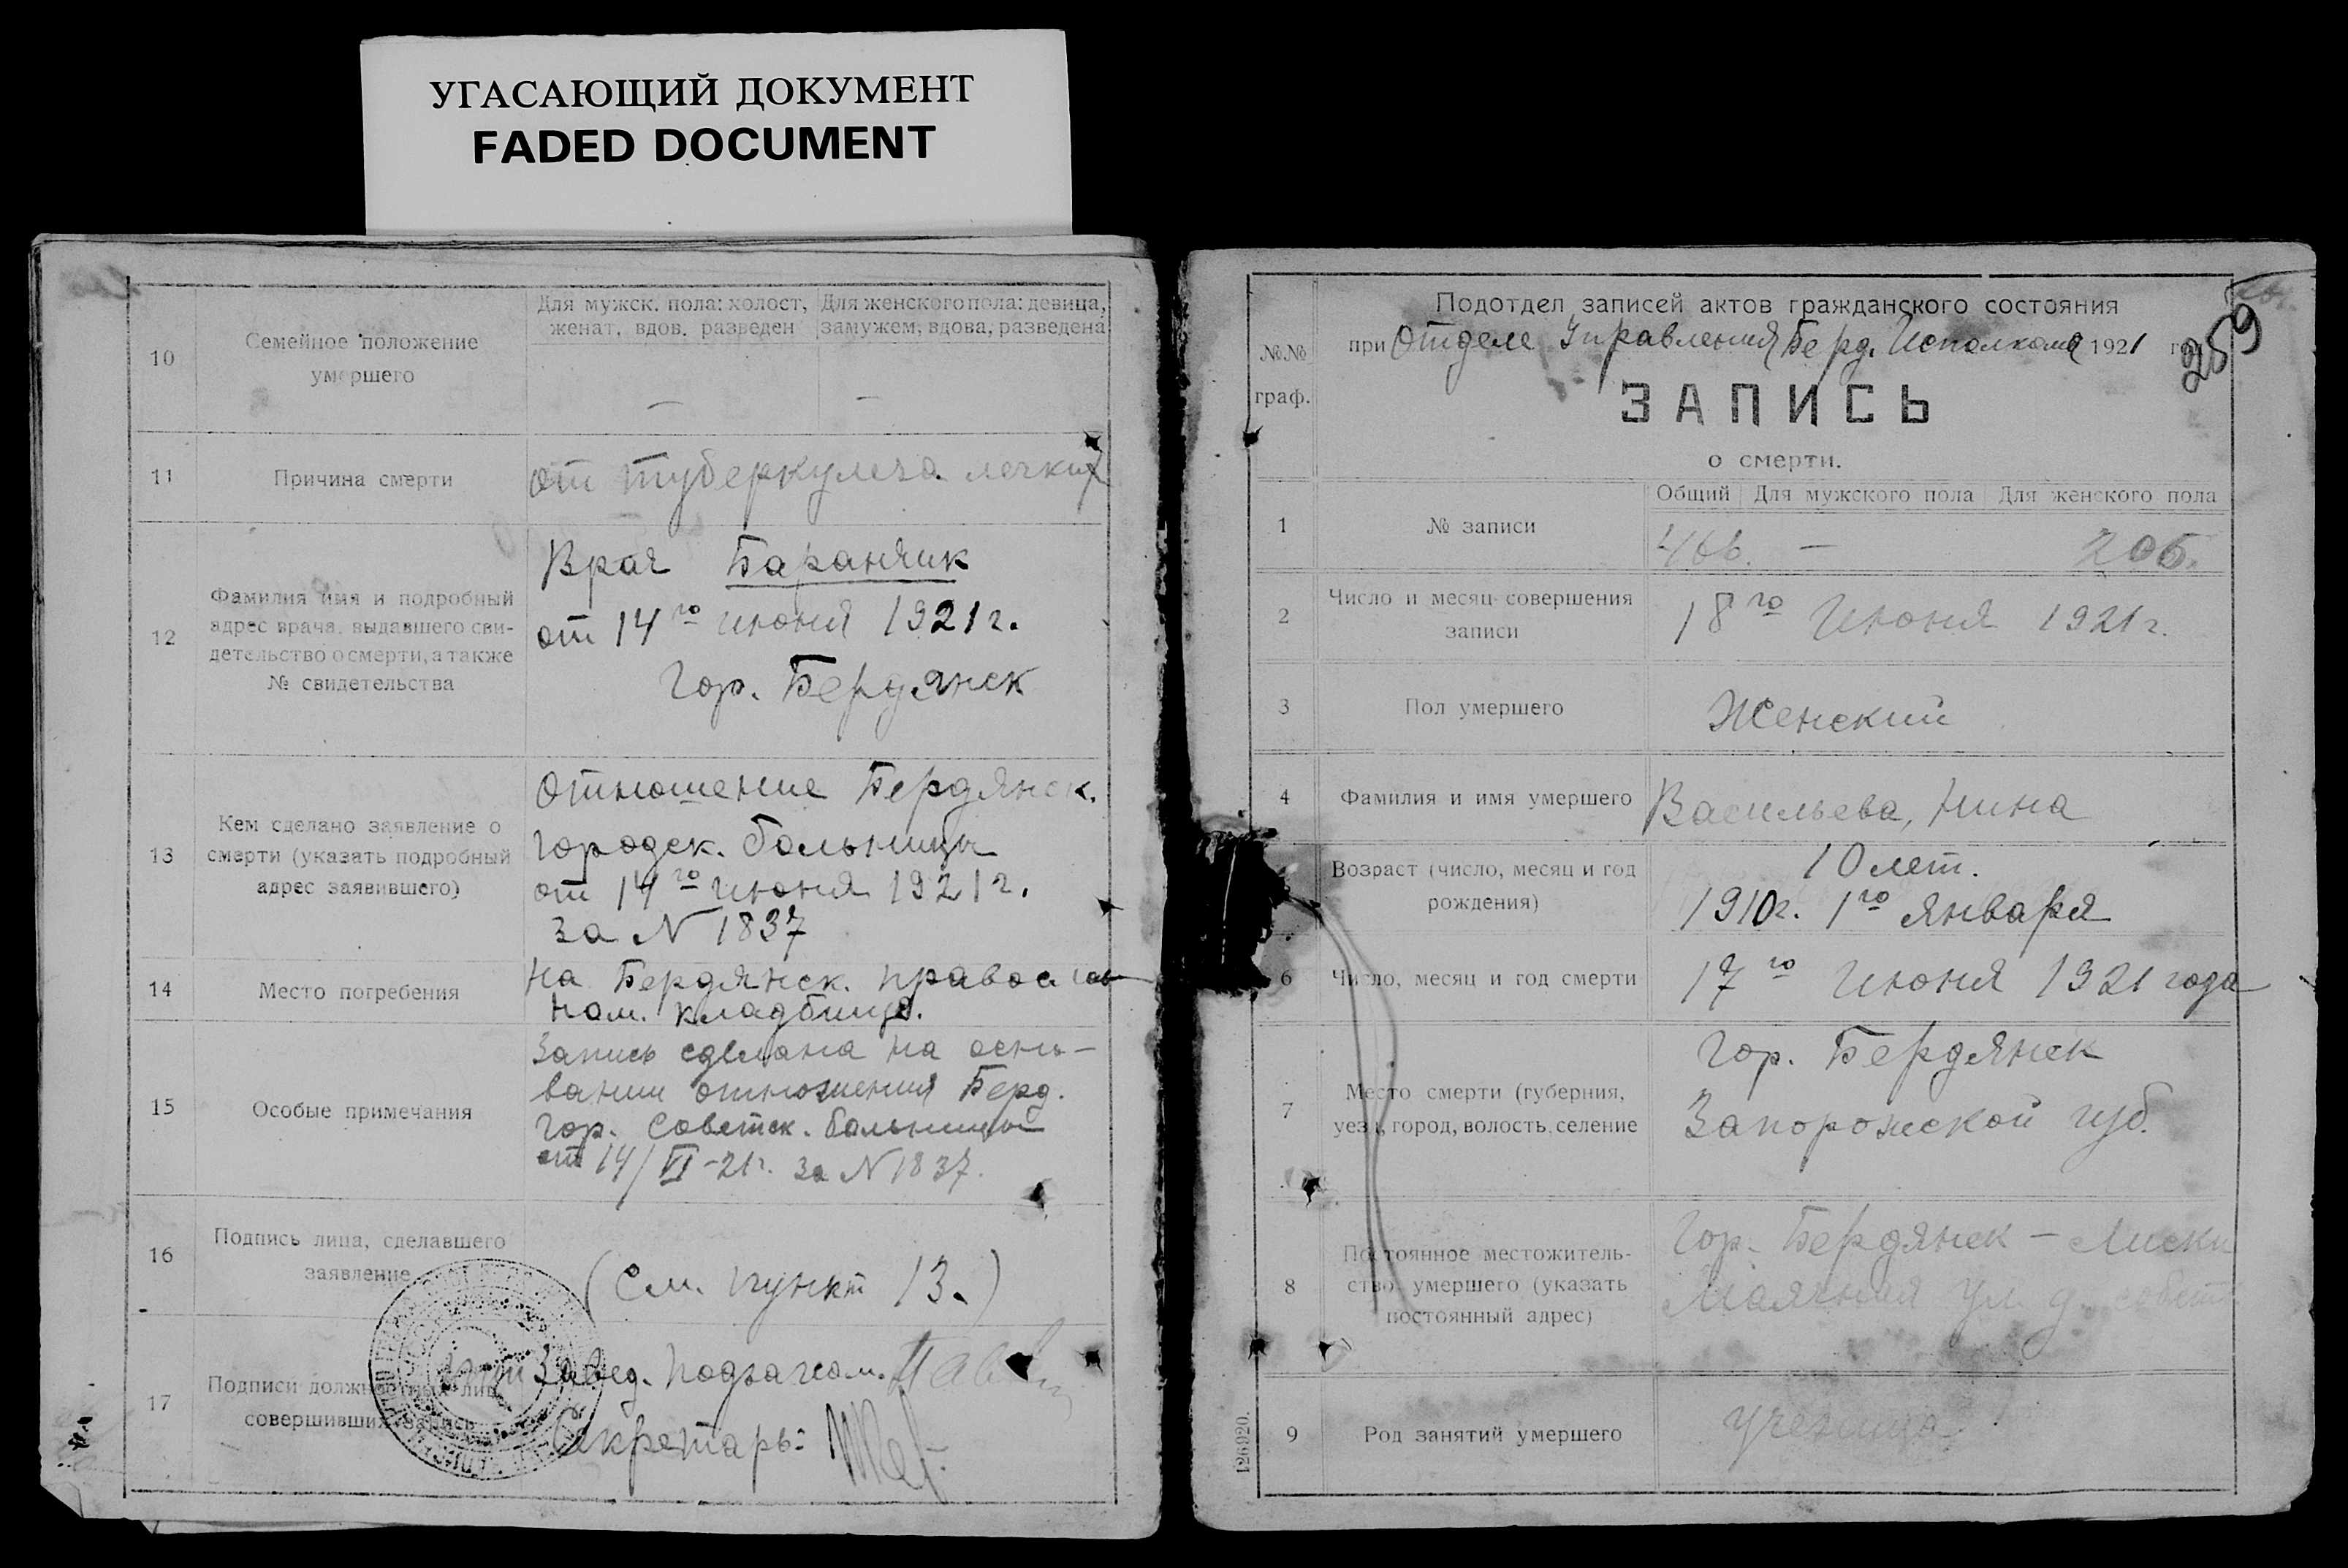 УГАСАЮЩИЙ ДОКУМЕНТ
FADED DOCUMENT
10
Семейное положение
умершего
Для мужск. пола: холост,
женат, вдов. разведен
Для женского пола: девица,
замужем, вдова, разведена
—
—
11
Причина смерти
от туберкулеза легких
12
Фамилия имя и подробный
адрес врача, выдавшего сви-
детельство о смерти, а также
№ свидетельства
Врач Баранчик
от 14го июня 1921 г.
Гор. Бердянск
13
Кем сделано заявление о
смерти (указать подробный
адрес заявившего)
Отношение Бердянск.
городск. больницы
от 14го июня 1921 г.
за N 1837
14
Место погребения
На Бердянск. православ
ном. кладбище.
15
Особые примечания
Запись сделана на осно-
вании отношения Берд.
гор. Советск. больницы
от 14/VI-21г. за N 1837.
16
Подпись лица, сделавшего
заявление
(См. пункт 13.)
17
Подписи должностных лиц
совершивших запись
Завед. Подзагсом.
Секретарь:
№№
граф.
Подотдел записей актов гражданского состояния
при Отделе Управления Берд. Исполкома 1921 год
259
ЗАПИСЬ
о смерти.
1
№ записи
Общий
Для мужского пола
Для женского пола
466. — 205.
2
Число и месяц совершения
записи
18го Июня 1921 г.
3
Пол умершего
Женский
4
Фамилия и имя умершего
Васильева, Нина
Возраст (число, месяц и год
рождения)
10 лет.
1910г. 1го Января
6
Число, месяц и год смерти
17го Июня 1921 года
7
Место смерти (губерния,
уезд, город, волость, селение
Гор. Бердянск
Запорожской губ.
8
Постоянное местожитель-
ство умершего (указать
постоянный адрес)
Гор. Бердянск - Лиски
Маячная ул. д.
9
Род занятий умершего
ученица
126920.